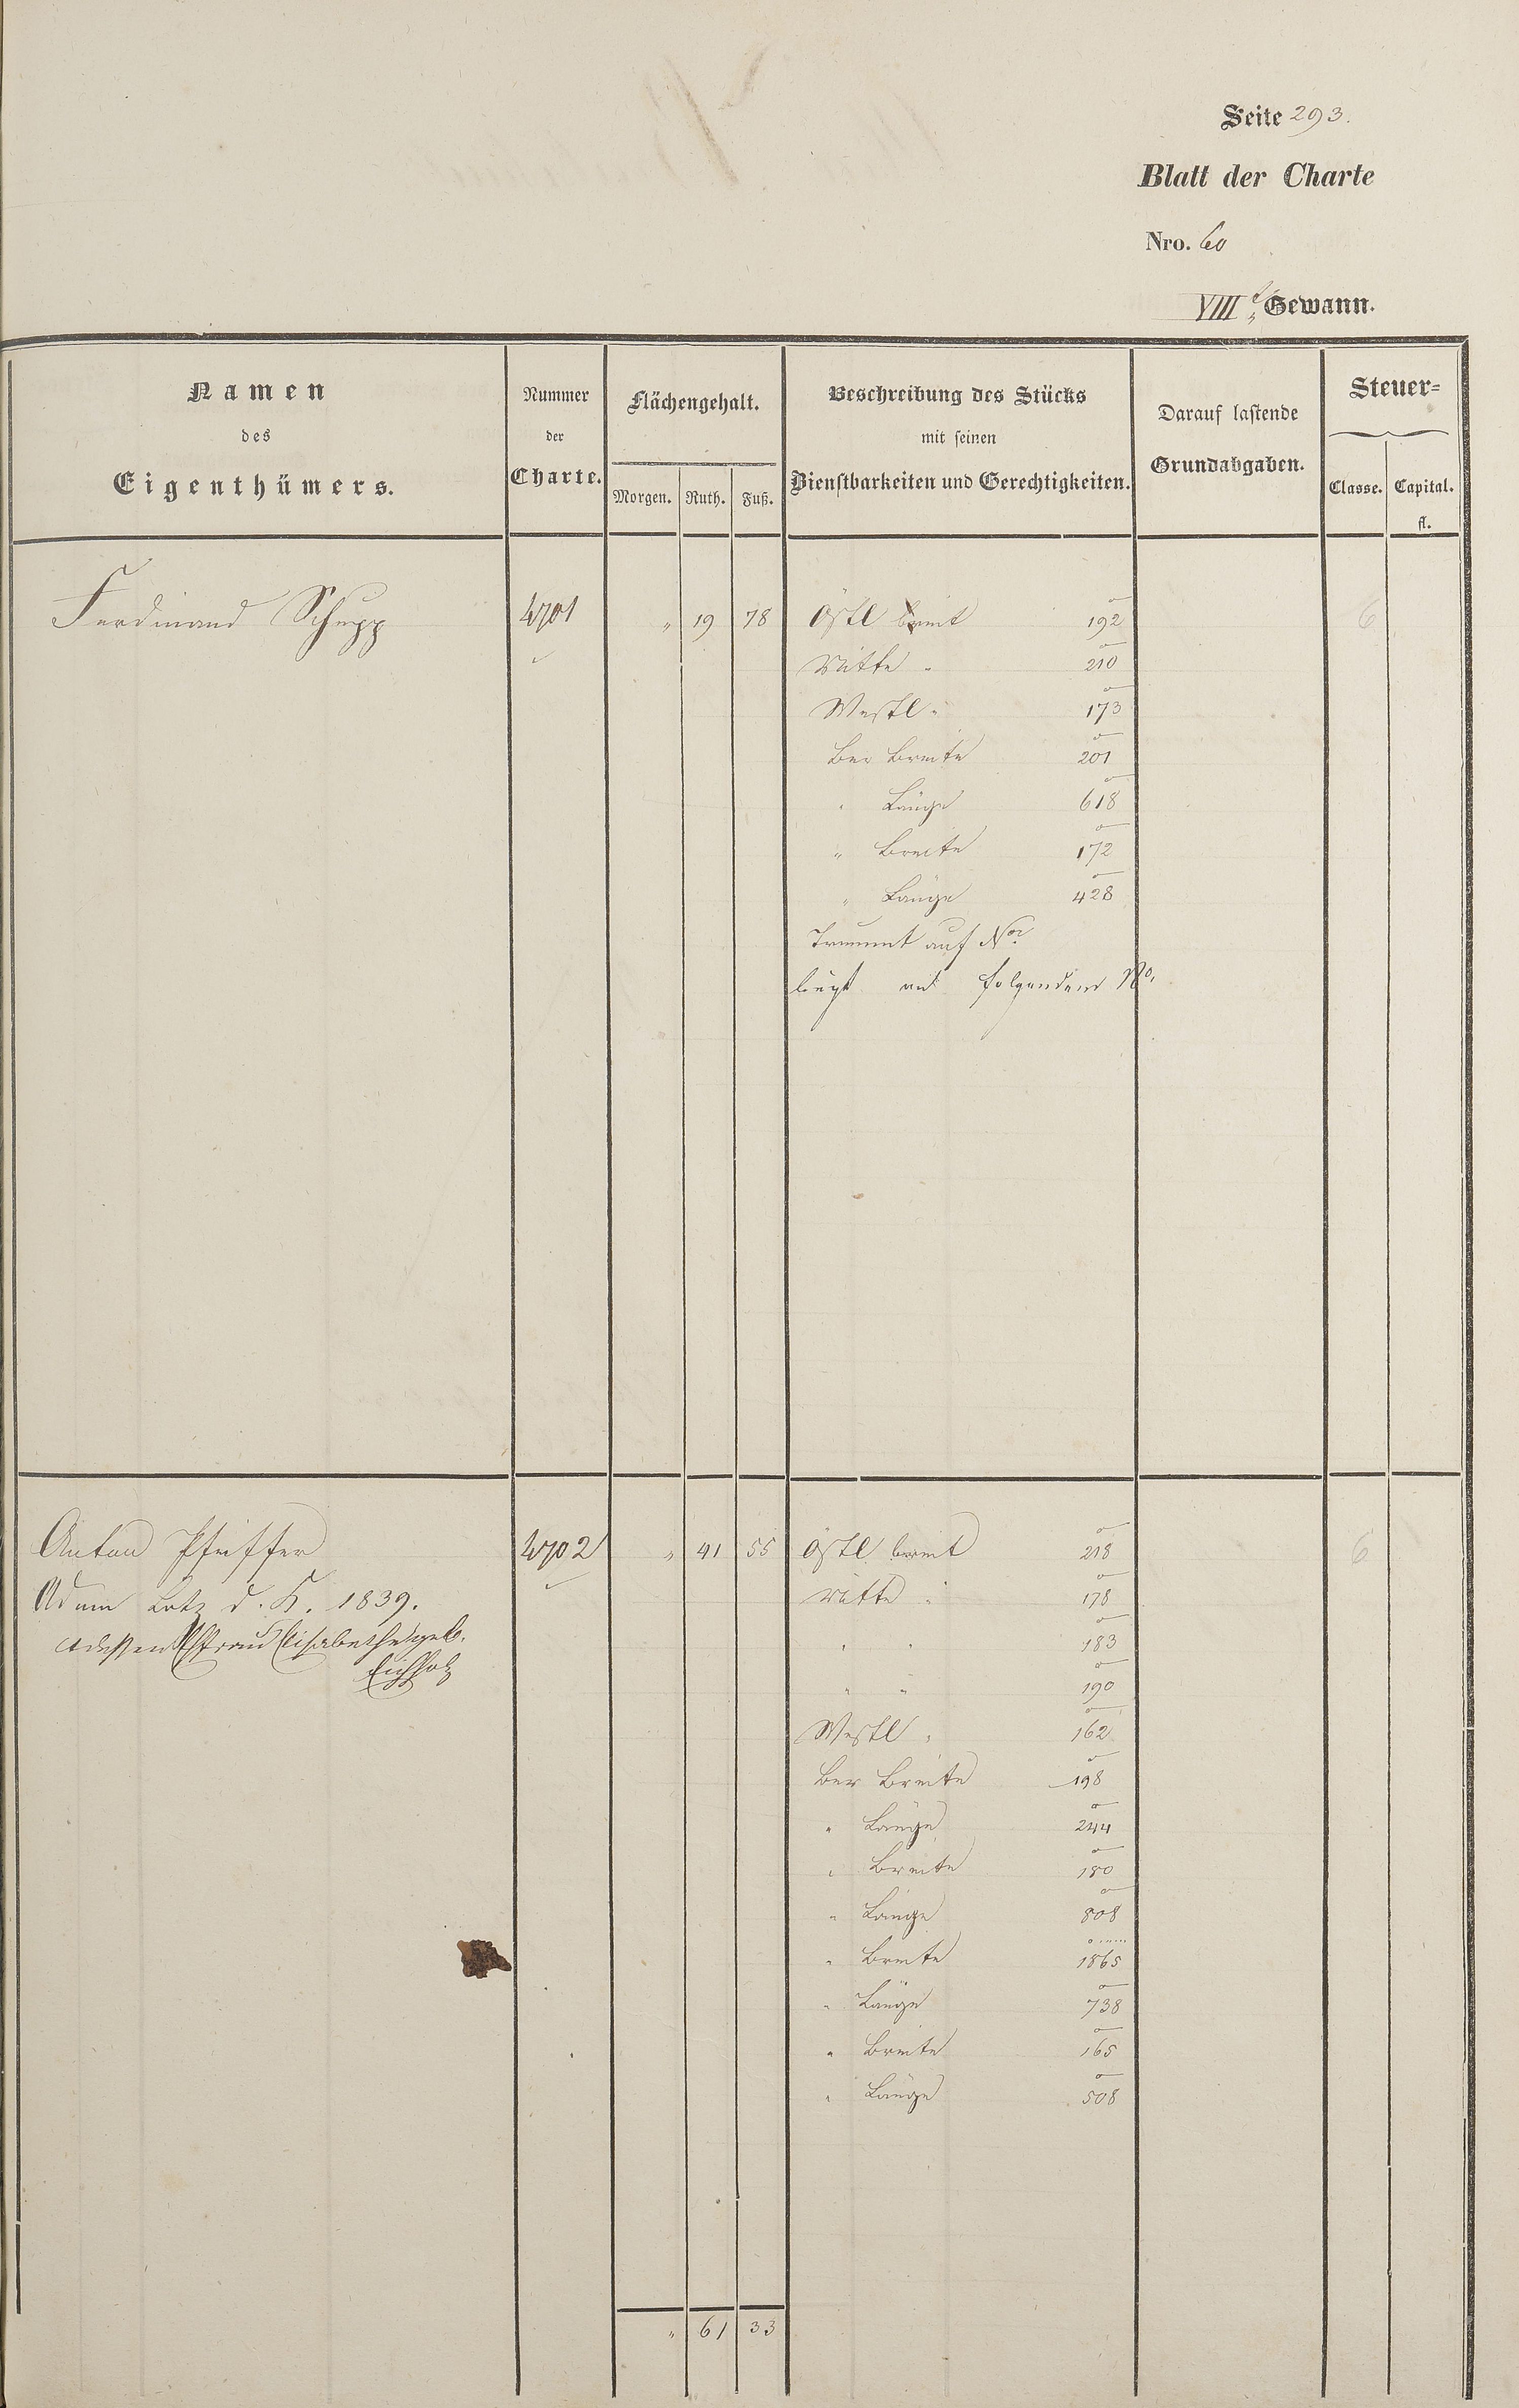 Seite 293.
Blatt der Charte
Nro. 60
VIII Gewann.
Namen
des
Eigenthümers.
Nummer
der
Charte.
Flächengehalt.
Morgen. Ruth. Fuß.
Beschreibung des Stücks
mit seinen
Dienstbarkeiten und Gerechtigkeiten.
Darauf lastende
Grundabgaben.
Steuer=
Classe. Capital.
fl.
Ferdinand Schupp 4701 " 19 78 Östl breit 192 6
Mitte " 210
Westl " 173
Ber Breite 201
" Länge 618
" Breite 172
" Länge 428
auf No
liegt mit folgendem No.
Anton Pfeiffer 4702 " 41 55 Östl breit 218 6
Adam Lotz d. K. 1839. Mitte " 178
dessen Ehfrau Elisabetha geb. " " 183
Eichholz " " 190
Westl " 162
Ber Breite 198
" Länge 244
" Breite 180
" Länge 808
" Breite 1865
" Länge 738
" Breite 165
" Länge 508
" 61 33